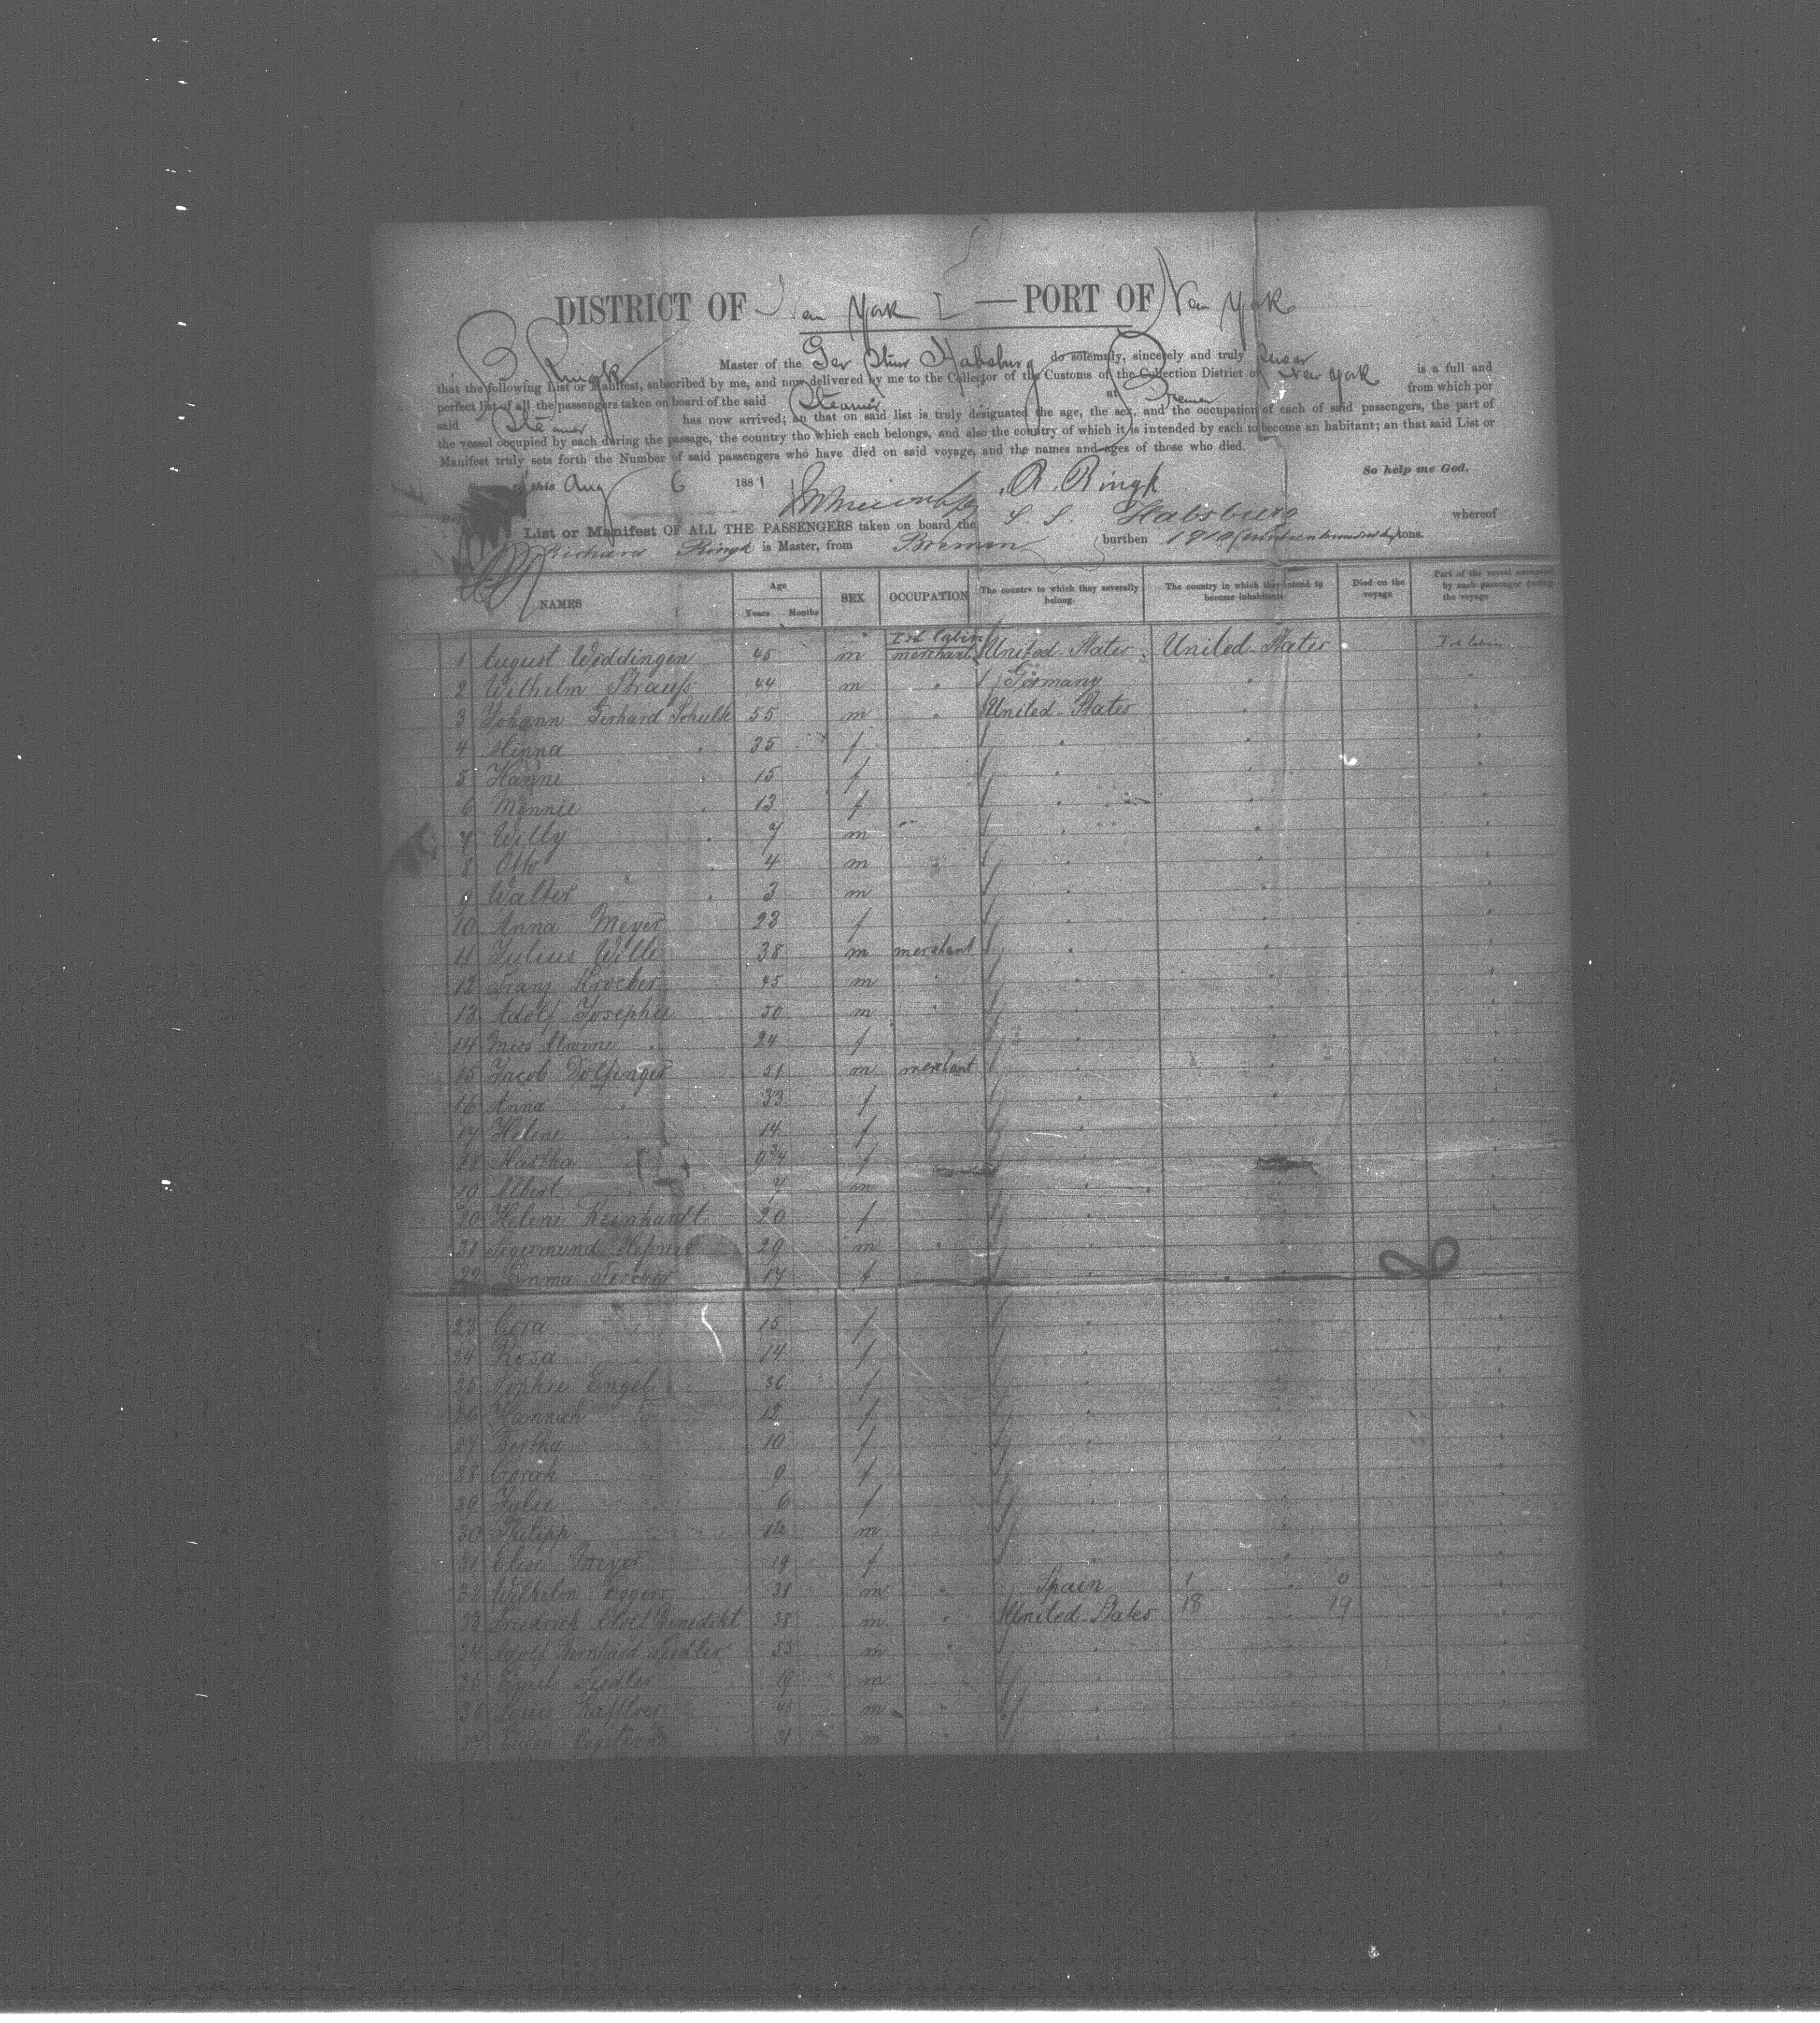 DISTRICT OF New York — PORT OF New York
R Ringk Master of the Ger Stmr Habsburg do solemnly, sincerely and truly swear
that the following List or Manifest, subscribed by me, and now delivered by me to the Collector of the Customs of the Collection District of New York is a full and
perfect list of all the passengers taken on board of the said Steamer at Bremen from which por
said Steamer has now arrived; an that on said list is truly designated the age, the sex, and the occupation of each of said passengers, the part of
the vessel occupied by each during the passage, the country tho which each belongs, and also the country of which it is intended by each to become an habitant; an that said List or
Manifest truly sets forth the Number of said passengers who have died on said voyage, and the names and ages of those who died.
So help me God.
this Aug 6 1881 R. Ringk
List or Manifest OF ALL THE PASSENGERS taken on board the S. S. Habsburg whereof
Richard Ringk is Master, from Bremen burthen 1910 tons.
NAMES Age Years Months SEX OCCUPATION The country to which they severally belong: The country in which they intend to become inhabitants Died on the voyage Part of the vessel occupied by each passenger during the voyage
Ist Cabin
1 August Weddingen 45 m merchant United States United States Ist Cabin
2 Wilhelm Strauß 44 m " Germany " "
3 Johann Gerhard Schulte 55 m " United States " "
4 Minna " 35 f " " "
5 Hanni " 15 f " " "
6 Minnie " 13 f " " "
7 Willy " 7 m " " "
8 Otto " 4 m " " "
9 Walter " 3 m " " "
10 Anna Meyer 23 f " " "
11 Julius Wille 38 m merchant " " "
12 Franz Kroeber 45 m " " " "
13 Adolf Josephie 50 m " " " "
14 Miss Alwine " 24 f " " "
15 Jacob Dolfinger 51 m merchant " " "
16 Anna " 33 f " " "
17 Helene " 14 f " " "
18 Martha " 9 3/4 f " " "
19 Albert " 7 m " " "
20 Helene Reinhardt 20 f " " "
21 Sigismund 29 m " " " "
22 Emma Fischer 17 f " " "
23 Cora " 15 f " " "
24 Rosa " 14 f " " "
25 Sophie Engel 36 f " " "
26 Hannah " 12 f " " "
27 Bertha " 10 f " " "
28 Corah " 9 f " " "
29 Julie " 6 f " " "
30 Philipp " 1 1/2 m " " "
31 Elise Meyer 19 f " " "
32 Wilhelm Eggers 31 m " Spain 1 " 0 "
33 Friedrich Adolf Benedikt 38 m " United States 18 " 19 "
34 Adolf Bernhard Fiedler 53 m " " " "
35 Emil Fiedler 19 m " " "
36 Louis Raffloer 45 m " " " "
37 Eugen 31 m " " " "